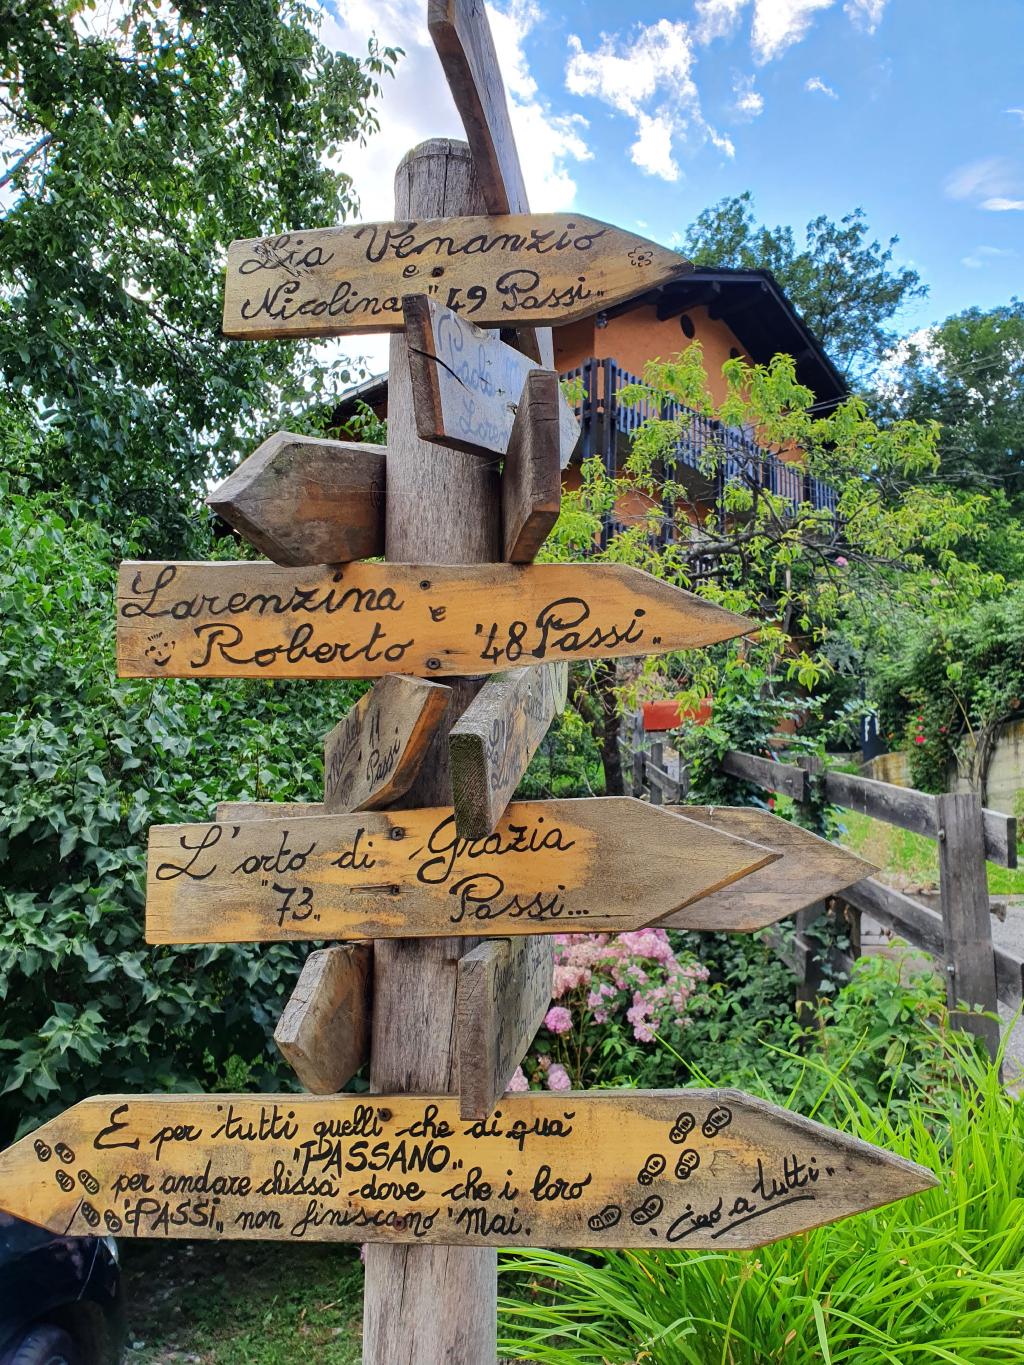 Lia Venanzio
e
Nicolina "49 Passi"
Paola
Loren
Lorenzina e
Roberto "48 Passi"
11
Passi
L'orto di Grazia
"73" Passi...
E per tutti quelli che di quà
"PASSANO"
per andare chissà dove che i loro
"PASSI" non finiscano Mai.
"Ciao a tutti"